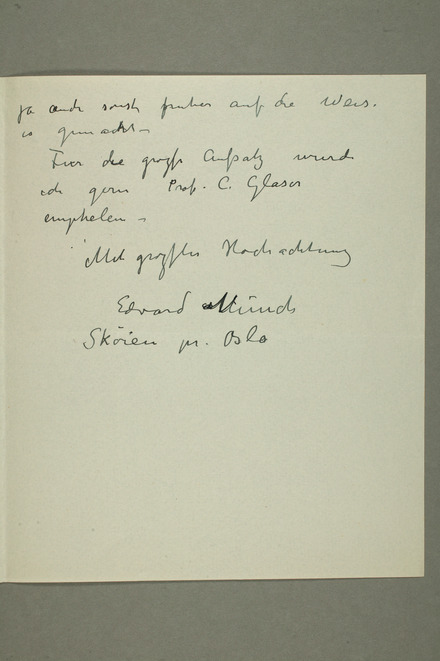 ja auch sonst früher auf die Weis.
is gemacht –
Fur die grosse Aufsatz wurde
ich gern Prof. C. Glaser
emphelen –
Mit grosster Hochachtung
Edvard Munch
Sköien pr. Oslo